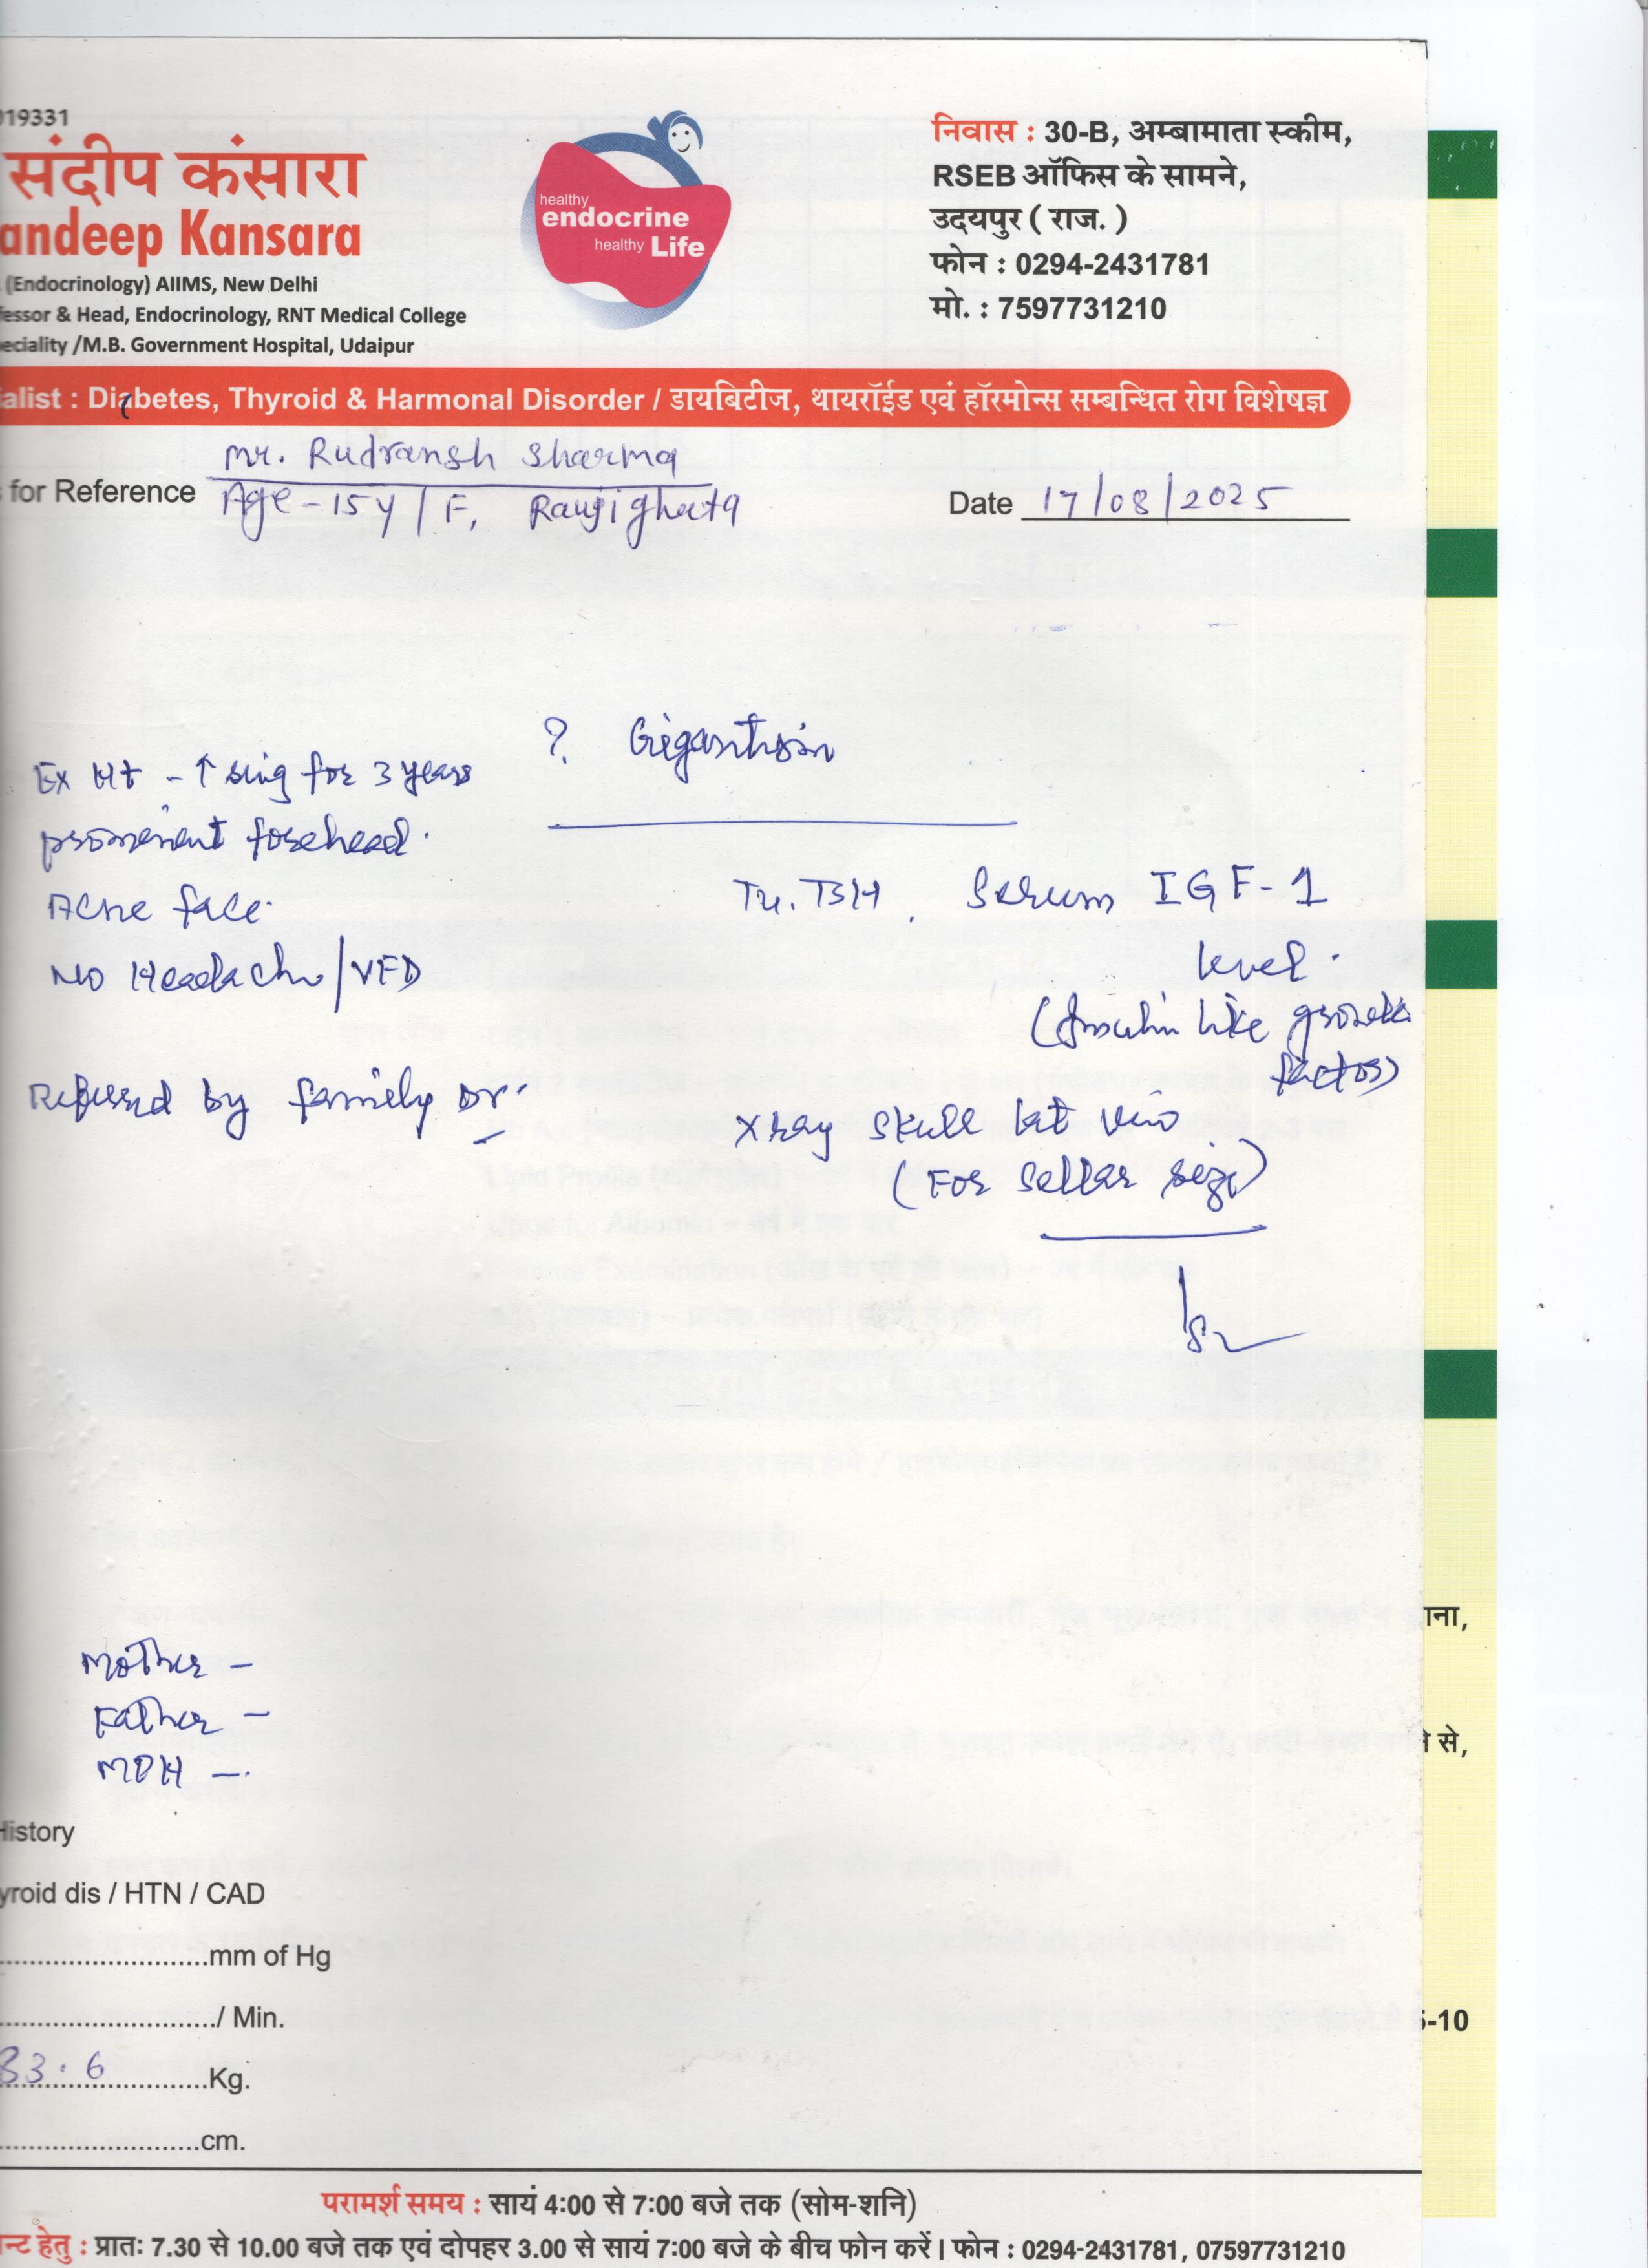 019331
संदीप कंसारा
andeep Kansara
. (Endocrinology) AIIMS, New Delhi
fessor & Head, Endocrinology, RNT Medical College
peciality /M.B. Government Hospital, Udaipur
healthy
endocrine
healthy Life
निवास : 30-B, अम्बामाता स्कीम,
RSEB ऑफिस के सामने,
उदयपुर ( राज. )
फोन : 0294-2431781
मो. : 7597731210
ialist : Diabetes, Thyroid & Harmonal Disorder / डायबिटीज, थायरॉईड एवं हॉरमोन्स सम्बन्धित रोग विशेषज्ञ
Mr. Rudransh Sharma
s for Reference Age - 15 y / F,
Date 17/08/2025
? Gigantism
Ex Ht - ↑ sing for 3 years
prominent forehead.
Acne face.
No Headache / VFD
T4. TSH, Serum IGF-1
level.
(Insulin like growth
factor)
Referred by family Dr.
Xray Skull lat view
(For Sellar size)
Mother -
Father -
MPH -
History
yroid dis / HTN / CAD
mm of Hg
/ Min.
83.6 Kg.
cm.
ाना,
से,
-10
परामर्श समय : सायं 4:00 से 7:00 बजे तक (सोम-शनि)
न्ट हेतु : प्रातः 7.30 से 10.00 बजे तक एवं दोपहर 3.00 से सायं 7:00 बजे के बीच फोन करें। फोन : 0294-2431781, 07597731210